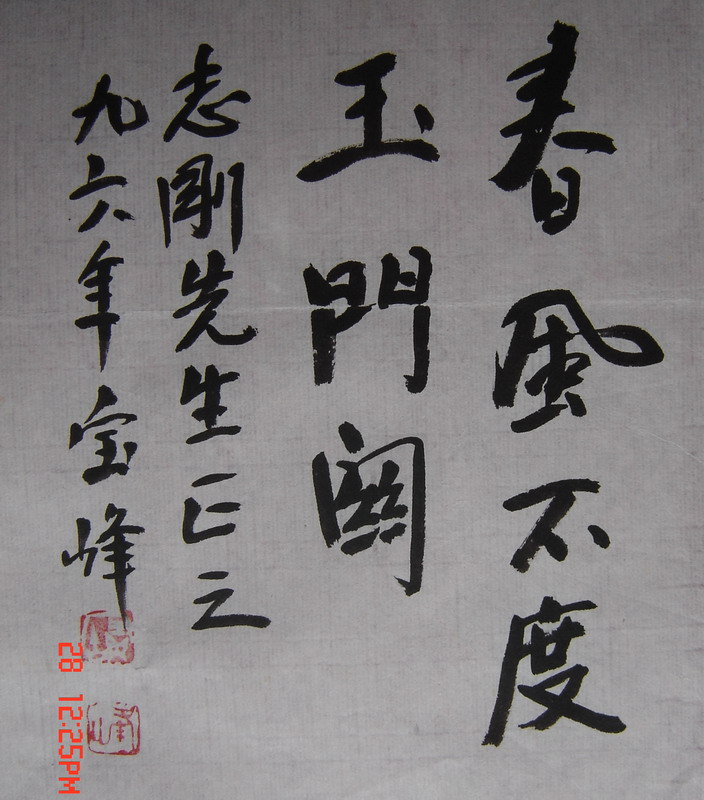 春風不度
玉門關
志剛先生正之
九六年宝峰
峰
28 12:25PM